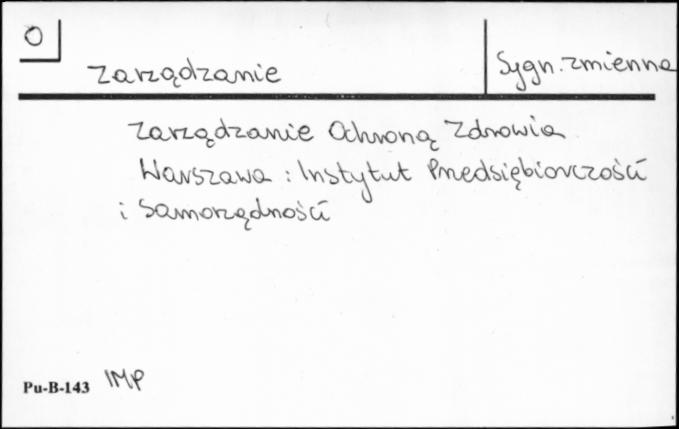 O
Zarządzanie
Sygn. zmienna
Zarządzanie Ochroną Zdrowia
Warszawa : Instytut Przedsiębiorczości
i Samorządności
Pu-B-143 IMP